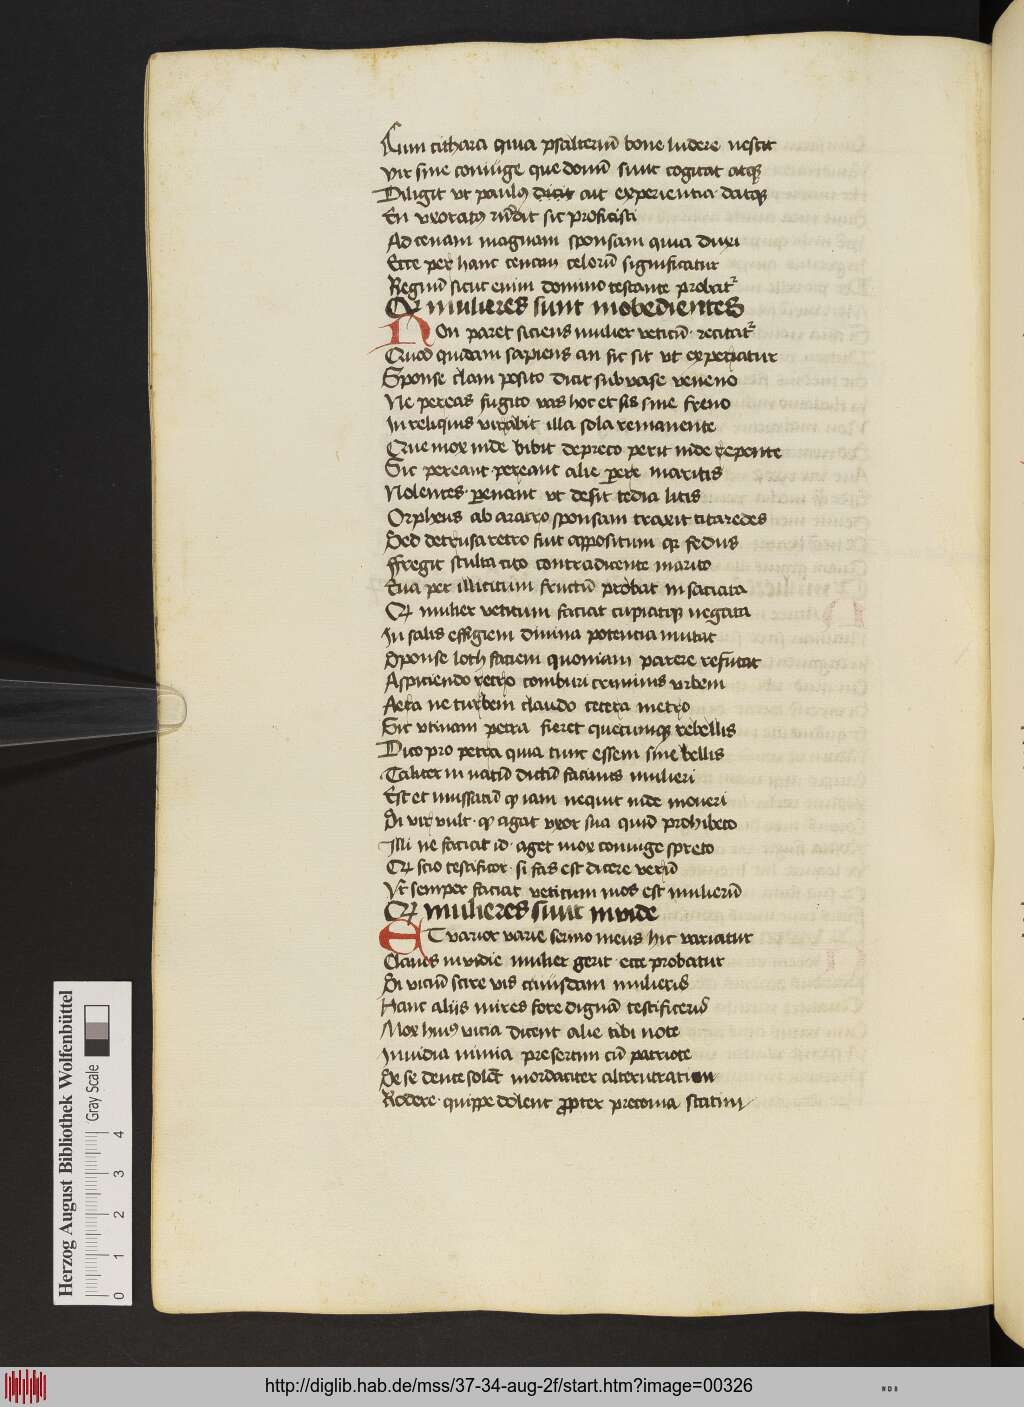 Cum cithara quia psalteriū bene ludere nescit
Vir sine coniuge que domū sunt cogitat atqꝫ
Diligit vt paulꝰ dicit ait experientia datqꝫ
En vxoratꝰ rūdit sic proficisci
Ad cenam magnam sponsam quia duxi
Ecce per hanc cenam celorū significatur
Regnū sicut enim domino testante probatᷣ
Qꝛ mulieres sunt inobedientes
Non paret siciens mulier veticū recitatᷣ
Quod quidam sapiens an sic sit vt experiatur
Sponse clam posito dicit sub vase veneno
Ne pereas fugito vas hoc et sis sine freno
In reliquis vitabit illa sola remanente
Que mox inde bibit de preco perit inde repente
Sic pereant pereant alie ꝑere maritis
Nolentes ꝑeniant vt desit tedia litis
Orpheus ab aratro sponsam traxit citaredes
Sed detrusa retro fuit appositum qꝛ fedus
ffregit stulta cito contradicente marito
Eua per illicitum fructū probat insaciata
Qꝛ mulier vetitum faciat cupiatqꝫ negata
In salis effigiem diuina potencia mutat
Sponse loth faciem quoniam parere refutat
Aspiciendo retro comburi criminis vrbem
Aera ne turbem claudo cetera metro
Sic vtinam petra fieret quecumqꝫ rebellis
Dico pro petra quia tunc essem sine bellis
Taliter in natū dictū faciunt mulieri
Est et inussatū ꝙ iam nequit inde moueri
Si vir vult ꝙ agat vxor sua quid prohibeto
Illi ne faciat id aget mox coniuge spreto
Qꝛ scio testificor si fas est dicere verū
Vt semper faciat vetitum mos est mulierū
Qꝛ mulieres sunt inuide
ET varior varie sermo meus hic variatur
Claues inuidie mulier gerit ecce probatur
Si viciū scire vis cuiusdam mulieris
Hanc aliis mires fore dignā testificeris
Mox huiꝰ vicia dicent alie tibi note
Inuidia nimia presertim cū patriote
De se dente solēt mordaciter alterutratim
Rodere quippe dolent ꝓpter preconia statim
Herzog August Bibliothek Wolfenbüttel
Gray Scale
0 1 2 3 4
http://diglib.hab.de/mss/37-34-aug-2f/start.htm?image=00326